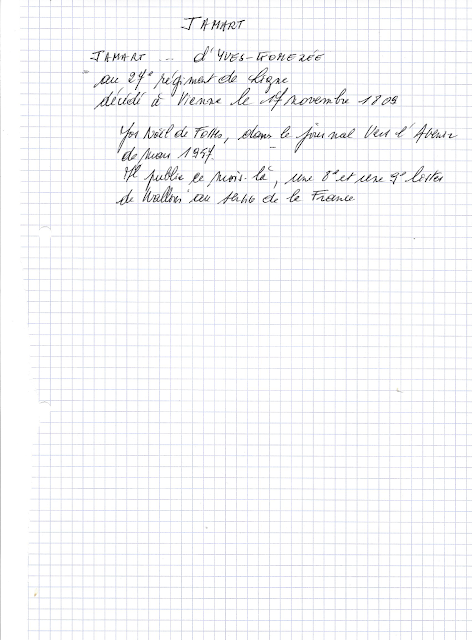 JAMART
JAMART ... d'YVES-GOMEZÉE
au 27e régiment de Ligne
décédé à Vienne le 17 novembre 1809
Noël de dans le journal Vers l'Avenir
de mars
Il publie ce mois-là, une 8e et une 9e listes
de Wallons au service de la France